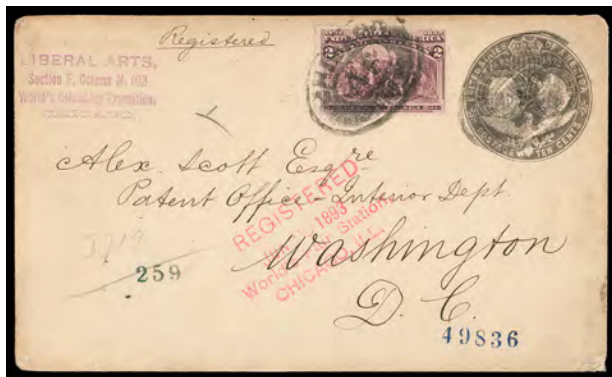 Registered
LIBERAL ARTS,
Section F, Column N, 103
World's Columbian Exposition,
CHICAGO
2 2
UNITED STATES
TEN CENTS
Alex. Scott Esqre
Patent Office - Interior Dept
Washington
D. C.
REGISTERED
1893
World's Fair Station
CHICAGO, ILL.
3919
259
49836